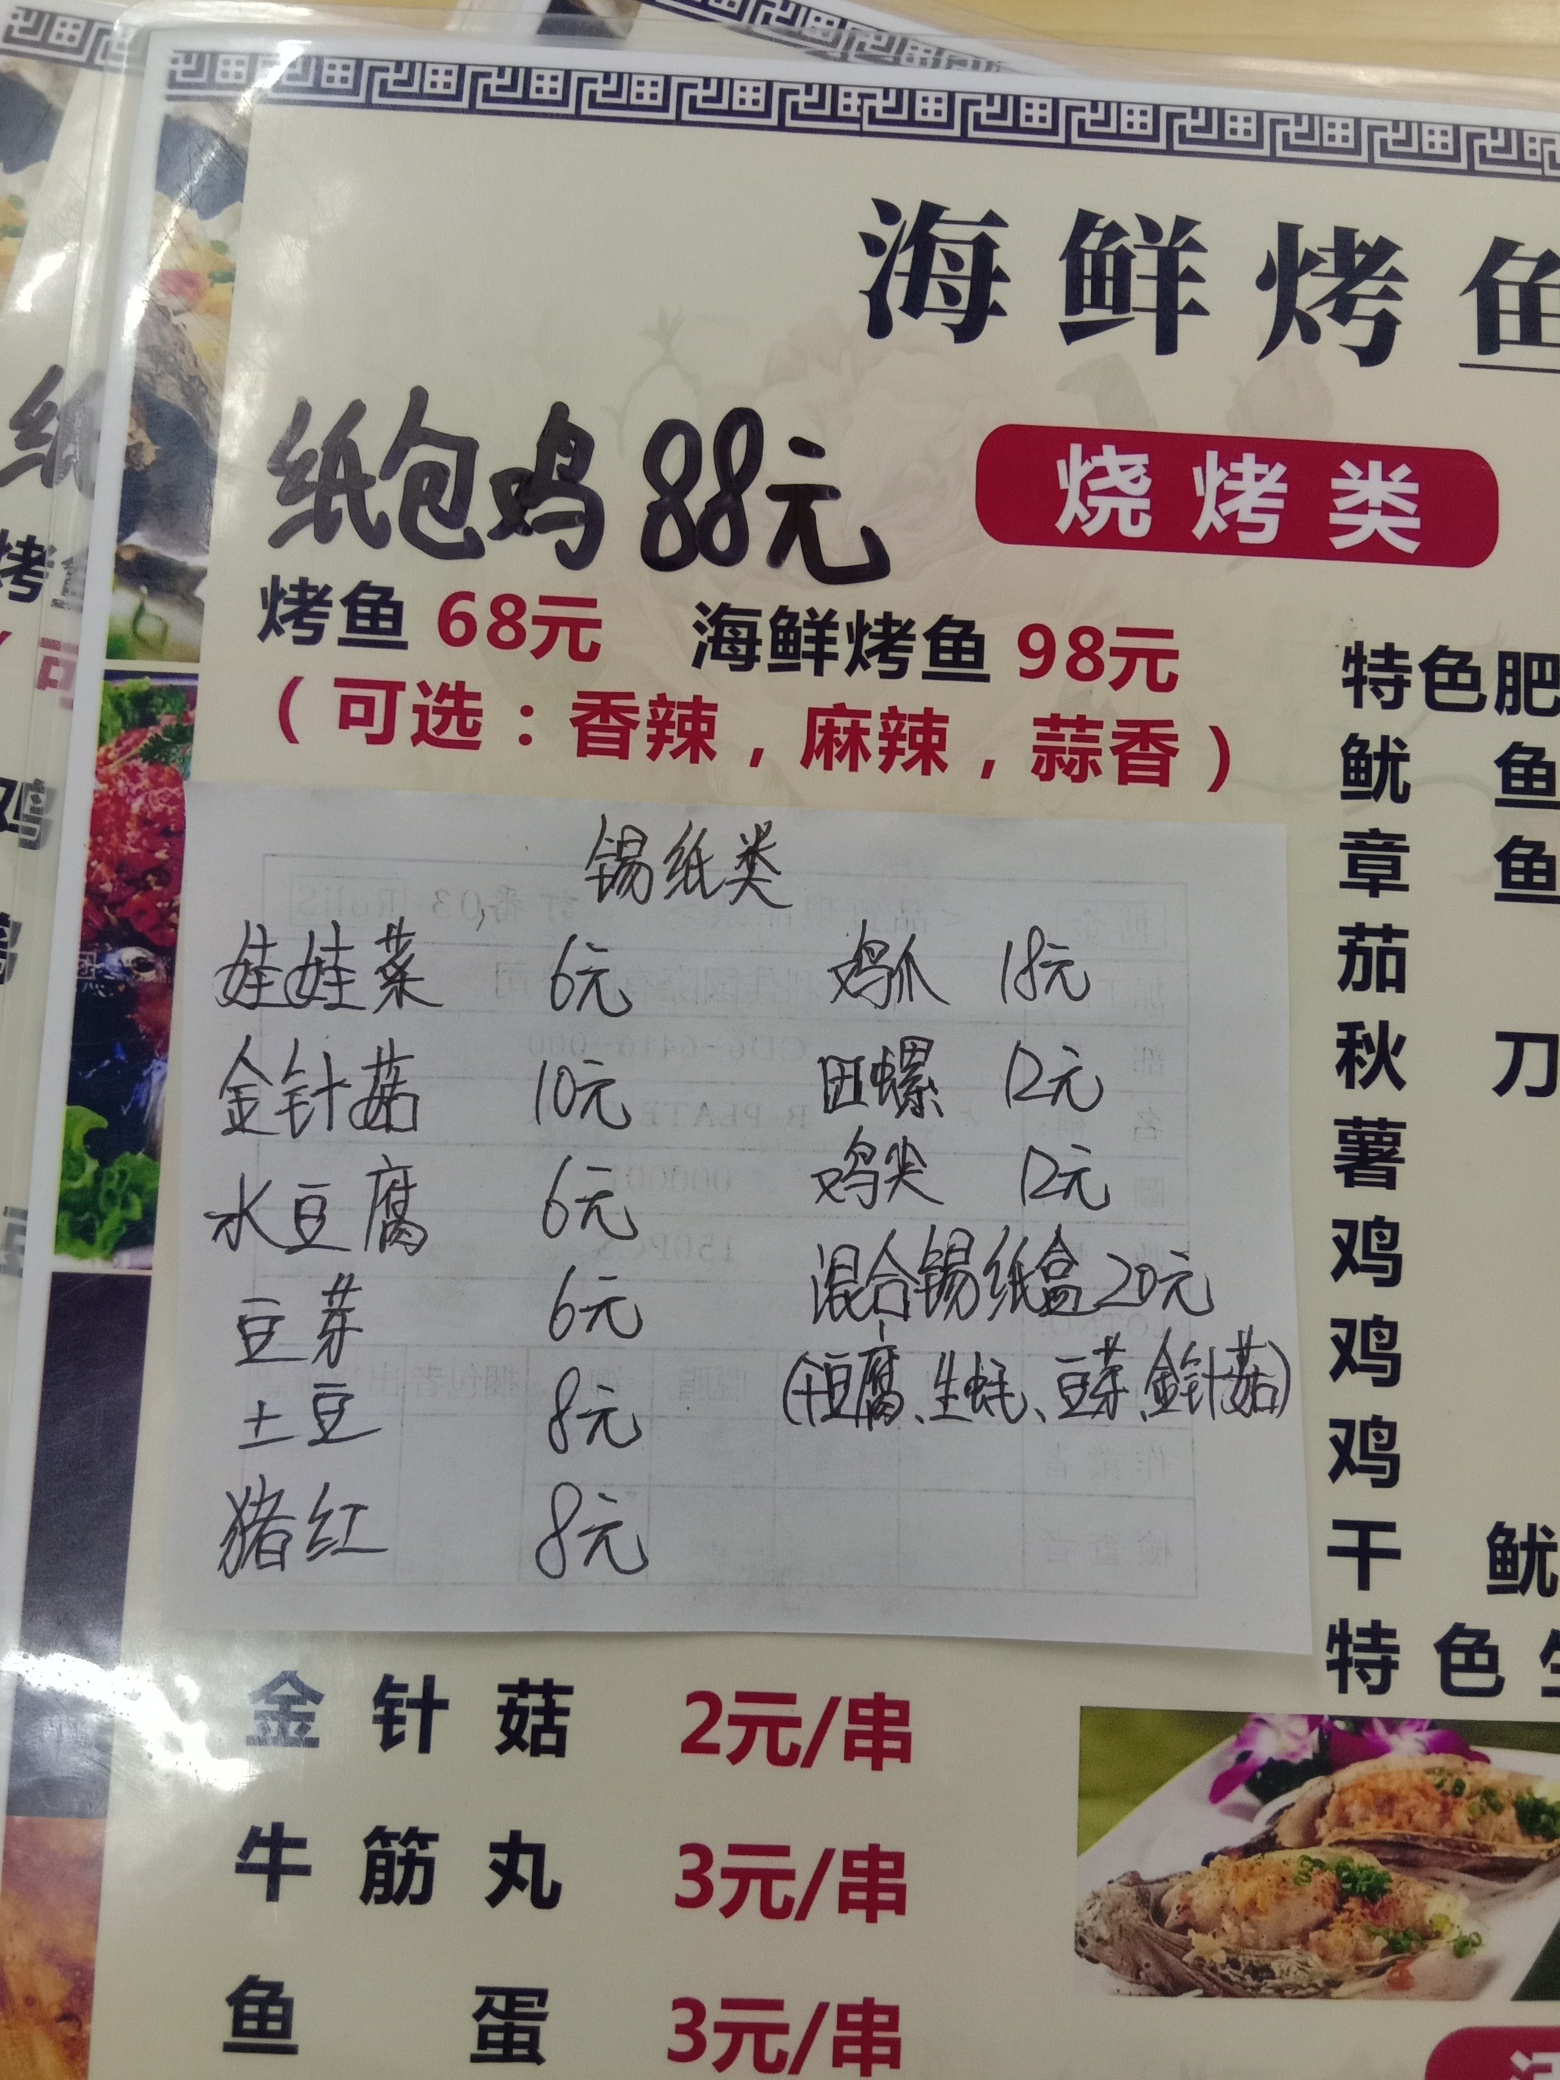 海鲜烤鱼
纸包鸡 88元
烧烤类
烤鱼 68元 海鲜烤鱼 98元
（可选：香辣，麻辣，蒜香）
锡纸类
娃娃菜 6元
金针菇 10元
水豆腐 6元
豆芽 6元
土豆 8元
猪红 8元
鸡爪 18元
田螺 12元
鸡尖 12元
混合锡纸盒 20元
(干豆腐、生蚝、豆芽、金针菇)
金针菇 2元/串
牛筋丸 3元/串
鱼蛋 3元/串
特色肥
鱿鱼
章鱼
茄
秋刀
薯
鸡
鸡
鸡
干鱿
特色生